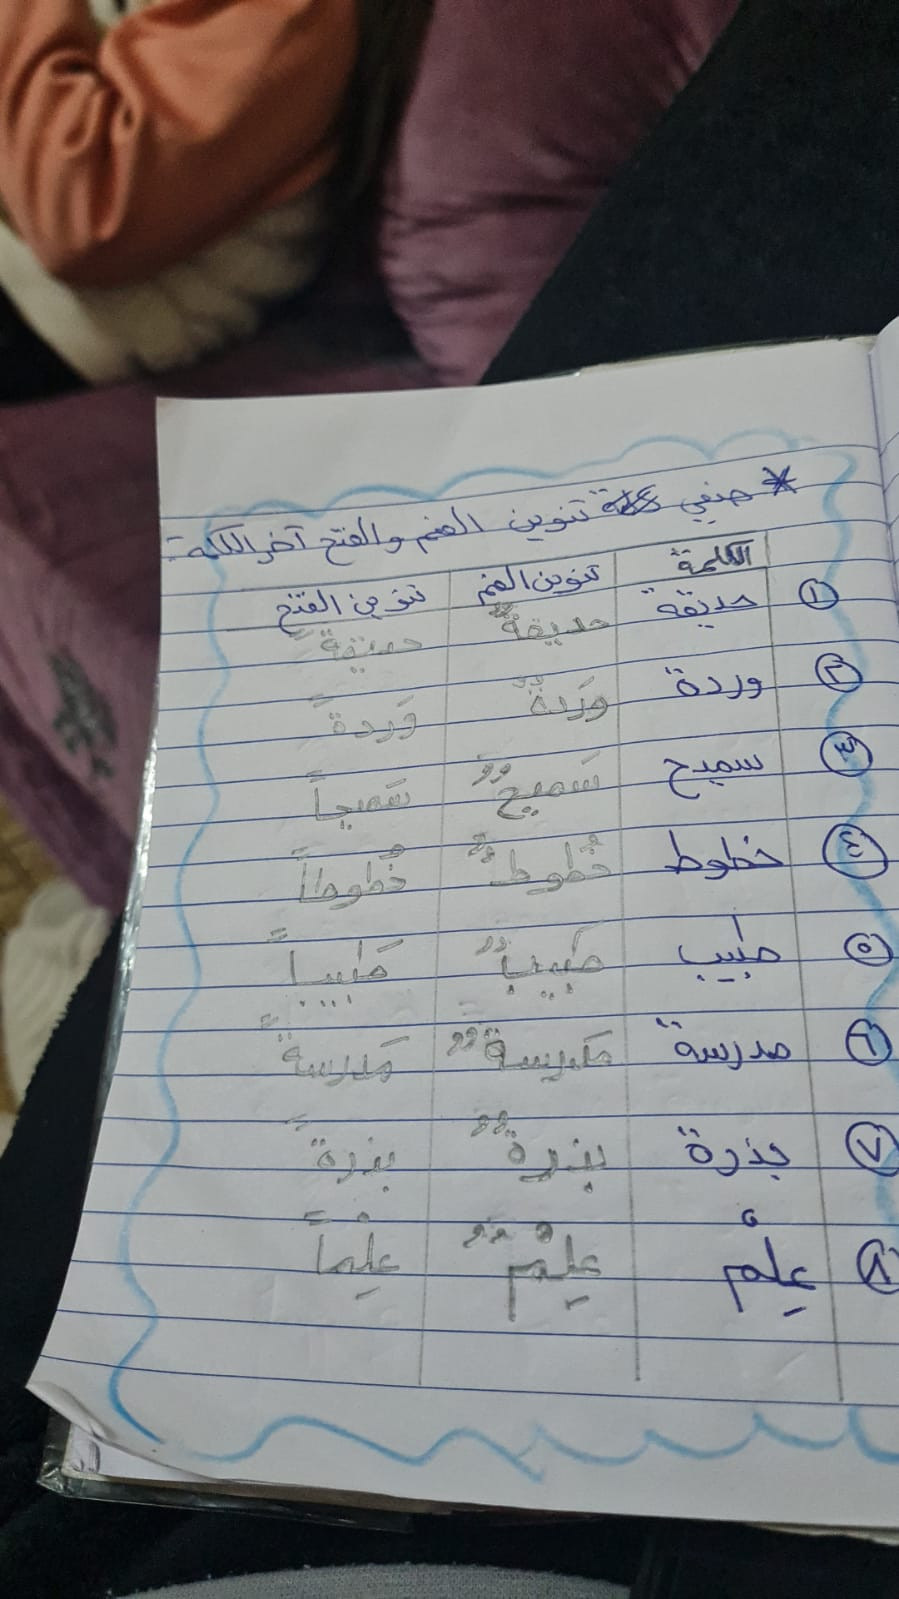 * صنفي تنوين الضم والفتح آخر الكلمة :-
الكلمة تنوين الضم تنوين الفتح
١ حديقة حديقةٌ حديقةً
٢ وردة وَردةٌ وَردةً
٣ سميح سَميحٌ سَميحاً
٤ خطوط خُطوطٌ خُطوطاً
٥ طبيب طَبيباٌ طَبيباً
٦ مدرسة مَدرسةٌ مَدرسةً
٧ بذرة بذرةٌ بذرةً
٨ عِلْم عِلْمٌ عِلْماً